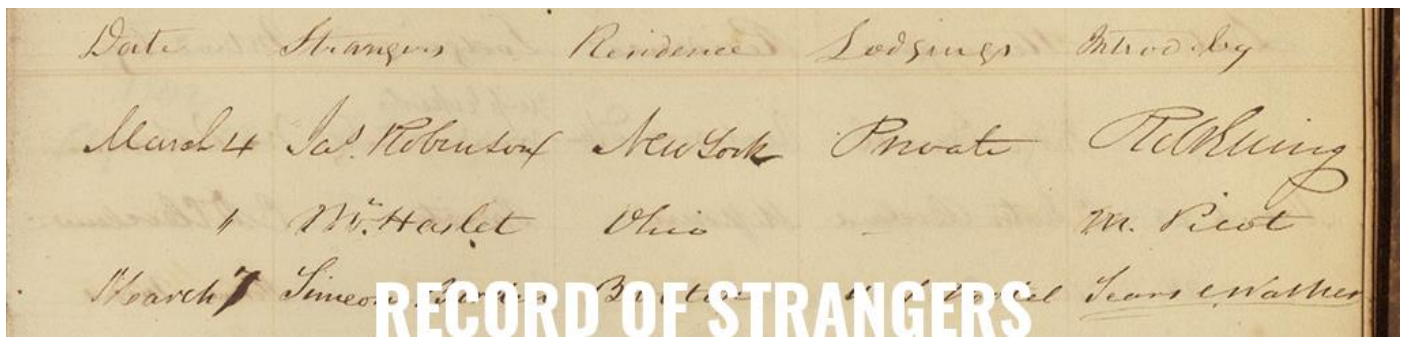 Date Strangers Residence Lodgings Introd. by
March 4 Jas. Robinson New York Private
" Mr. Haslet Ohio - M. Picot
March 7 Simeon Boston Hotel Sears C. Walker
RECORD OF STRANGERS